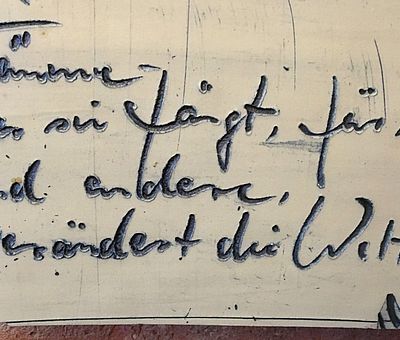 äume
er sie trägt, für
nd andere,
verändert die Welt